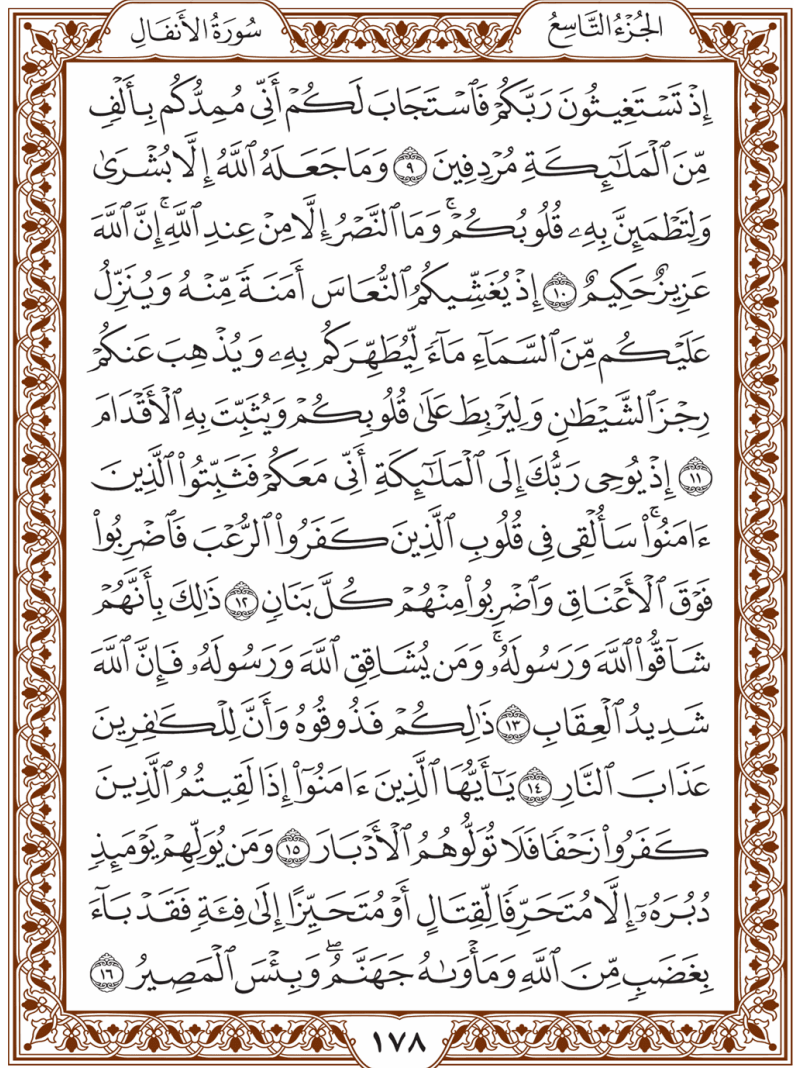 الجُزْءُ التَّاسِعُ
سُورَةُ الأَنفَالِ
إِذْ تَسْتَغِيثُونَ رَبَّكُمْ فَٱسْتَجَابَ لَكُمْ أَنِّى مُمِدُّكُم بِأَلْفٍ
مِّنَ ٱلْمَلَـٰٓئِكَةِ مُرْدِفِينَ ٩ وَمَا جَعَلَهُ ٱللَّهُ إِلَّا بُشْرَىٰ
وَلِتَطْمَئِنَّ بِهِۦ قُلُوبُكُمْ ۚ وَمَا ٱلنَّصْرُ إِلَّا مِنْ عِندِ ٱللَّهِ ۚ إِنَّ ٱللَّهَ
عَزِيزٌ حَكِيمٌ ١٠ إِذْ يُغَشِّيكُمُ ٱلنُّعَاسَ أَمَنَةً مِّنْهُ وَيُنَزِّلُ
عَلَيْكُم مِّنَ ٱلسَّمَآءِ مَآءً لِّيُطَهِّرَكُم بِهِۦ وَيُذْهِبَ عَنكُمْ
رِجْزَ ٱلشَّيْطَـٰنِ وَلِيَرْبِطَ عَلَىٰ قُلُوبِكُمْ وَيُثَبِّتَ بِهِ ٱلْأَقْدَامَ
١١ إِذْ يُوحِى رَبُّكَ إِلَى ٱلْمَلَـٰٓئِكَةِ أَنِّى مَعَكُمْ فَثَبِّتُوا۟ ٱلَّذِينَ
ءَامَنُوا۟ ۚ سَأُلْقِى فِى قُلُوبِ ٱلَّذِينَ كَفَرُوا۟ ٱلرُّعْبَ فَٱضْرِبُوا۟
فَوْقَ ٱلْأَعْنَاقِ وَٱضْرِبُوا۟ مِنْهُمْ كُلَّ بَنَانٍ ١٢ ذَٰلِكَ بِأَنَّهُمْ
شَآقُّوا۟ ٱللَّهَ وَرَسُولَهُۥ ۚ وَمَن يُشَاقِقِ ٱللَّهَ وَرَسُولَهُۥ فَإِنَّ ٱللَّهَ
شَدِيدُ ٱلْعِقَابِ ١٣ ذَٰلِكُمْ فَذُوقُوهُ وَأَنَّ لِلْكَـٰفِرِينَ
عَذَابَ ٱلنَّارِ ١٤ يَـٰٓأَيُّهَا ٱلَّذِينَ ءَامَنُوٓا۟ إِذَا لَقِيتُمُ ٱلَّذِينَ
كَفَرُوا۟ زَحْفًا فَلَا تُوَلُّوهُمُ ٱلْأَدْبَارَ ١٥ وَمَن يُوَلِّهِمْ يَوْمَئِذٍ
دُبُرَهُۥٓ إِلَّا مُتَحَرِّفًا لِّقِتَالٍ أَوْ مُتَحَيِّزًا إِلَىٰ فِئَةٍ فَقَدْ بَآءَ
بِغَضَبٍ مِّنَ ٱللَّهِ وَمَأْوَىٰهُ جَهَنَّمُ ۖ وَبِئْسَ ٱلْمَصِيرُ ١٦
١٧٨